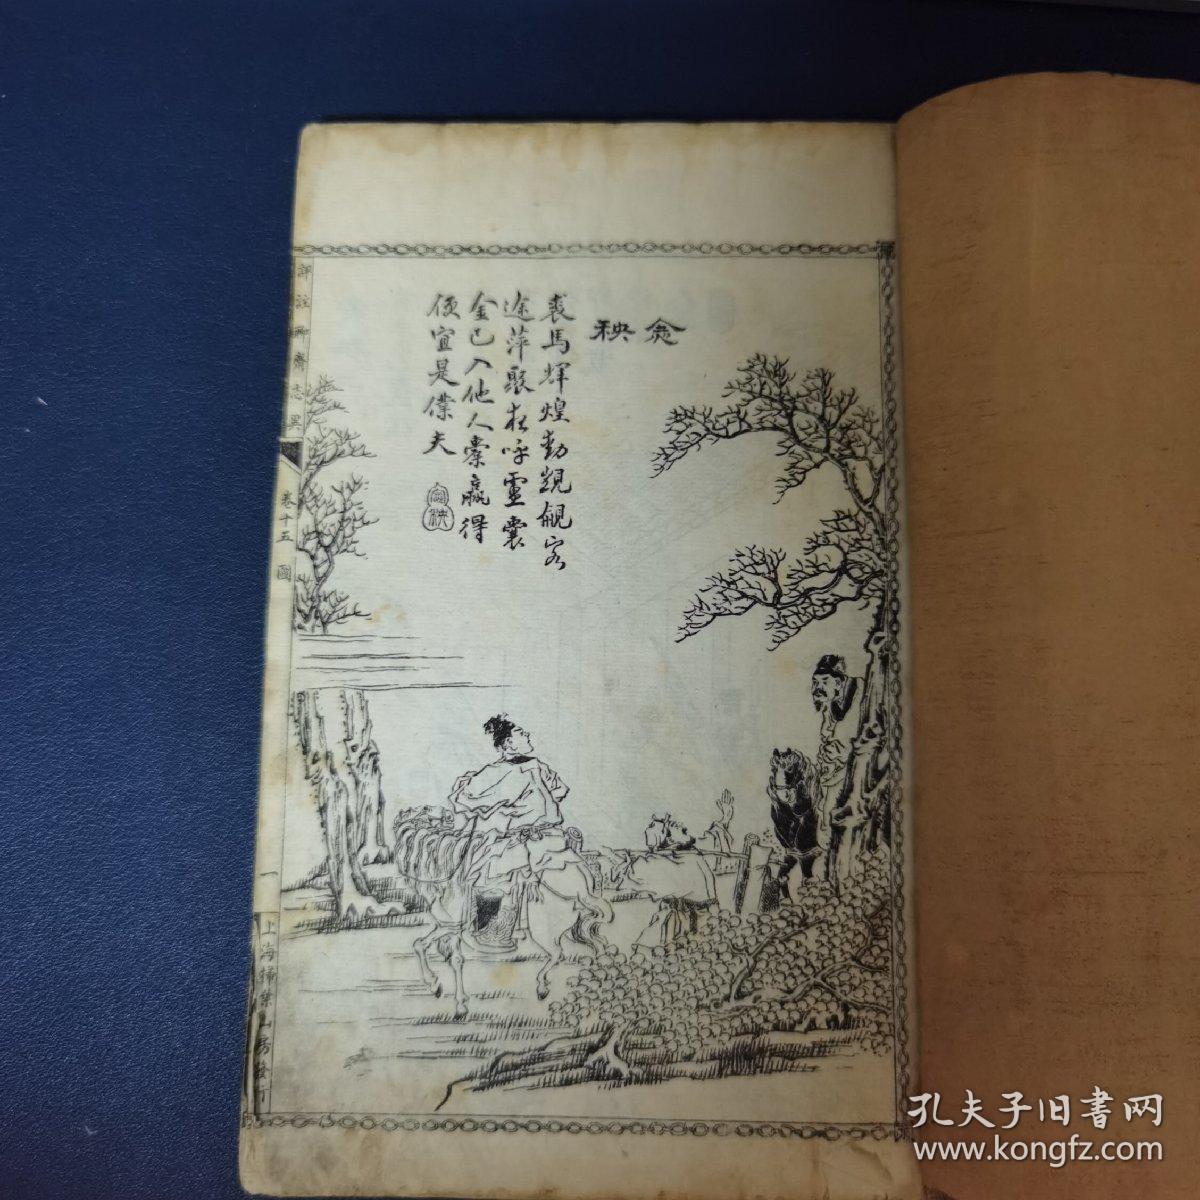 念秧
裘馬輝煌動覬覦客
途萍聚夜呼盧囊
金已入他人橐贏得
便宜是僕夫
念秧
詳註聊齋志異
卷十五 圖
一
上海掃葉山房發行
孔夫子旧書网
www.kongfz.com